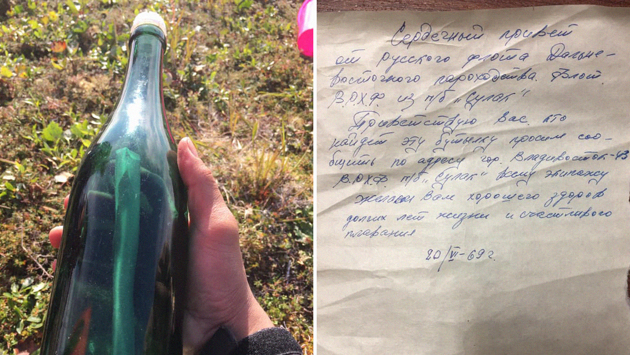 Сердечный привет
от русского флота Дальне-
восточного пароходства. Флот
В.Р.Х.Ф. из т/б „Сулак“
Приветствую Вас, кто
найдет эту бутылку просим соо-
бщить по адресу гор. Владивосток-43
В.Р.Х.Ф. т/б „Сулак“ всему экипажу
желаем Вам хорошего здоров
долгих лет жизни и счастливого
плавания
20/VI-69г.